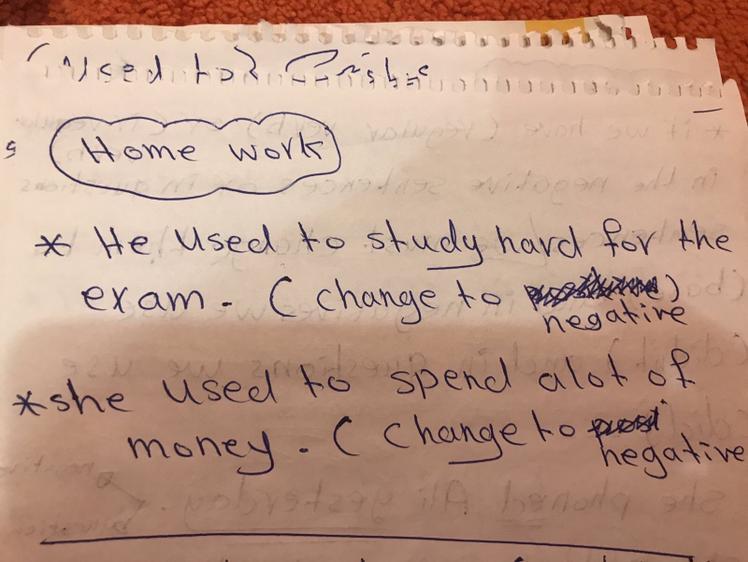 (used to)
Home work
* He used to study hard for the
exam. (change to
negative
* she used to spend alot of
money. (change to
negative